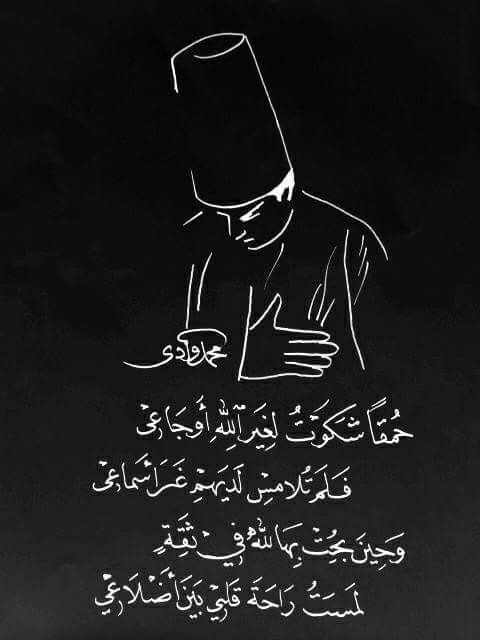 محمد
حُمقاً شَكَوْتُ لِغَيرِ اللهِ أَوجَاعِي
فَلَم تُلامِسْ لَدَيهِمْ غَيرَ أَسْماعِي
وَحِينَ بُحْتُ بِهَا للهِ فِي ثِقَةٍ
لَمَسْتُ رَاحَةَ قَلبِي بَينَ أَضْلَاعِي